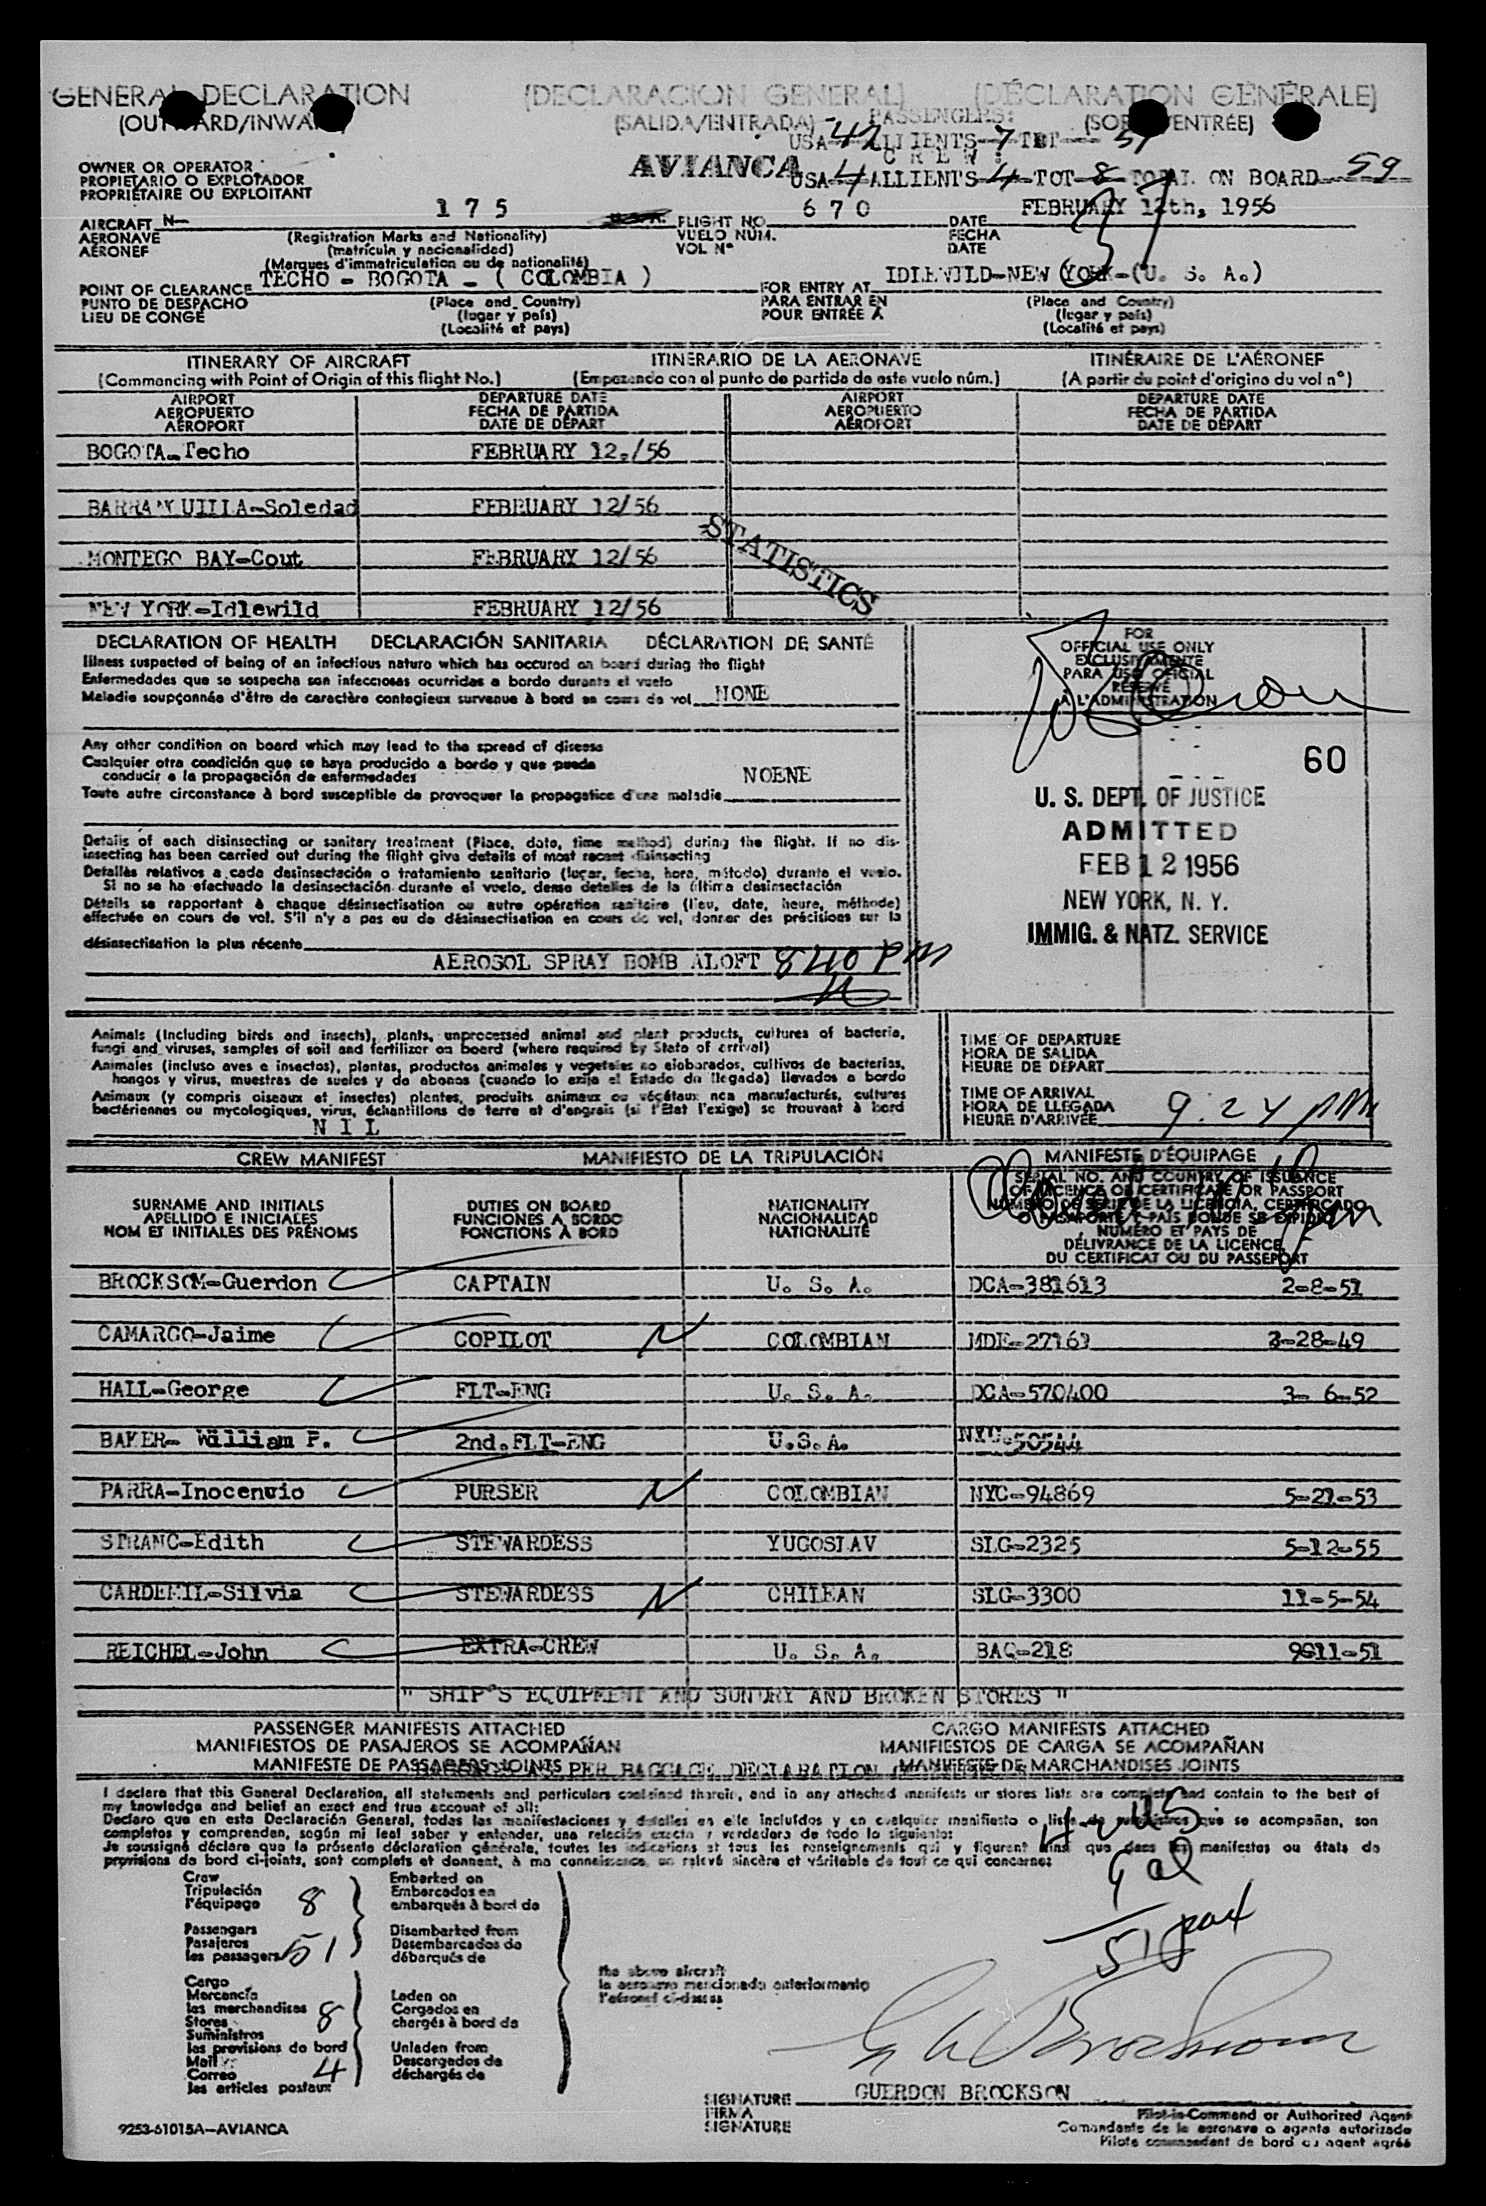 GENERAL DECLARATION (DECLARACION GENERAL) (DÉCLARATION GÉNÉRALE)
(OUTWARD/INWARD) (SALIDA/ENTRADA) (SORTIE/ENTRÉE)
PASSENGERS:
USA-42 ALLIENTS-7-TOT-- 51
C R E W :
AVIANCA USA-4-ALLIENTS-4-TOT-8-TOTAL ON BOARD 59
OWNER OR OPERATOR
PROPIETARIO O EXPLOTADOR
PROPRIÉTAIRE OU EXPLOITANT
AIRCRAFT N- 175 FLIGHT NO. 670 DATE FEBRUARY 12th, 1956
AERONAVE (Registration Marks and Nationality) VUELO NÚM. FECHA
AÉRONEF (matrícula y nacionalidad) VOL Nº DATE
(Marques d'immatriculation ou de nationalité)
POINT OF CLEARANCE TECHO - BOGOTA - ( COLOMBIA ) FOR ENTRY AT IDLEWILD-NEW YORK-(U. S. A.)
PUNTO DE DESPACHO (Place and Country) PARA ENTRAR EN (Place and Country)
LIEU DE CONGÉ (lugar y país) POUR ENTRÉE À (lugar y país)
(Localité et pays) (Localité et pays)
ITINERARY OF AIRCRAFT ITINERARIO DE LA AERONAVE ITINÉRAIRE DE L'AÉRONEF
(Commencing with Point of Origin of this flight No.) (Empezando con el punto de partida de este vuelo núm.) (A partir du point d'origine du vol nº)
AIRPORT DEPARTURE DATE AIRPORT DEPARTURE DATE
AEROPUERTO FECHA DE PARTIDA AEROPUERTO FECHA DE PARTIDA
AÉROPORT DATE DE DÉPART AÉROPORT DATE DE DÉPART
BOGOTA-Techo FEBRUARY 12./56
BARRANQUILLA-Soledad FEBRUARY 12/56
MONTEGO BAY-Cout FEBRUARY 12/56
STATISTICS
NEW YORK-Idlewild FEBRUARY 12/56
DECLARATION OF HEALTH DECLARACIÓN SANITARIA DÉCLARATION DE SANTÉ
Illness suspected of being of an infectious nature which has occured on board during the flight
Enfermedades que se sospecha son infecciosas ocurridas a bordo durante el vuelo
Maladie soupçonnée d'être de caractère contagieux survenue à bord en cours de vol NONE
FOR
OFFICIAL USE ONLY
EXCLUSIVAMENTE
PARA USO OFICIAL
RÉSERVÉ
À L'ADMINISTRATION
Any other condition on board which may lead to the spread of disease
Cualquier otra condición que se haya producido a bordo y que pueda
conducir a la propagación de enfermedades NOENE
Toute autre circonstance à bord susceptible de provoquer la propagation d'une maladie
60
U. S. DEPT. OF JUSTICE
ADMITTED
FEB 12 1956
NEW YORK, N. Y.
IMMIG. & NATZ. SERVICE
Details of each disinsecting or sanitary treatment (Place, date, time method) during the flight. If no dis-
insecting has been carried out during the flight give details of most recent disinsecting
Detalles relativos a cada desinsectación o tratamiento sanitario (lugar, fecha, hora, método) durante el vuelo.
Si no se ha efectuado la desinsectación durante el vuelo, dense detalles de la última desinsectación
Détails se rapportant à chaque désinsectisation ou autre opération sanitaire (lieu, date, heure, méthode)
effectuée en cours de vol. S'il n'y a pas eu de désinsectisation en cours de vol, donner des précisions sur la
désinsectisation la plus récente
AEROSOL SPRAY BOMB ALOFT 840 PM
Animals (Including birds and insects), plants, unprocessed animal and plant products, cultures of bacteria,
fungi and viruses, samples of soil and fertilizer on board (where required by State of arrival)
Animales (incluso aves e insectos), plantas, productos animales y vegetales no elaborados, cultivos de bacterias,
hongos y virus, muestras de suelos y de abonos (cuando lo exija el Estado de llegada) llevados a bordo
Animaux (y compris oiseaux et insectes) plantes, produits animaux ou végétaux non manufacturés, cultures
bactériennes ou mycologiques, virus, échantillons de terre et d'engrais (si l'État l'exige) se trouvant à bord
N I L
TIME OF DEPARTURE
HORA DE SALIDA
HEURE DE DÉPART
TIME OF ARRIVAL
HORA DE LLEGADA
HEURE D'ARRIVÉE 9:24 PM
CREW MANIFEST MANIFIESTO DE LA TRIPULACIÓN MANIFESTE D'ÉQUIPAGE
SURNAME AND INITIALS DUTIES ON BOARD NATIONALITY
APELLIDO E INICIALES FUNCIONES A BORDO NACIONALIDAD
NOM ET INITIALES DES PRÉNOMS FONCTIONS À BORD NATIONALITÉ
SERIAL NO. AND COUNTRY OF ISSUANCE
OF LICENCE OR CERTIFICATE OR PASSPORT
NÚMERO DE SERIE DE LA LICENCIA, CERTIFICADO
O PASAPORTE Y PAÍS DONDE SE EXPIDIÓ
NUMÉRO ET PAYS DE
DÉLIVRANCE DE LA LICENCE,
DU CERTIFICAT OU DU PASSEPORT
BROCKSOM-Guerdon CAPTAIN U. S. A. DCA-381613 2-8-51
CAMARGO-Jaime COPILOT COLOMBIAN MDE-27163 3-28-49
HALL-George FLT-ENG U. S. A. DCA-570400 3- 6-52
BAKER- William P. 2nd.FLT-ENG U.S.A. NYC-50544
PARRA-Inocencio PURSER COLOMBIAN NYC-94869 5-21-53
STRANC-Edith STEWARDESS YUGOSLAV SLG-2325 5-12-55
CARDEMIL-Silvia STEWARDESS CHILEAN SLG-3300 11-5-54
REICHEL-John EXTRA-CREW U. S. A. BAC-218 9611-51
" SHIP'S EQUIPMENT AND SUNDRY AND BROKEN STORES "
PASSENGER MANIFESTS ATTACHED CARGO MANIFESTS ATTACHED
MANIFIESTOS DE PASAJEROS SE ACOMPAÑAN MANIFIESTOS DE CARGA SE ACOMPAÑAN
MANIFESTE DE PASSAGERS JOINTS PER BAGGAGE DECLARATION MANIFESTE DE MARCHANDISES JOINTS
I declare that this General Declaration, all statements and particulars contained therein, and in any attached manifests or stores lists are complete and contain to the best of
my knowledge and belief an exact and true account of all:
Declaro que en esta Declaración General, todas las manifestaciones y detalles en ella incluídos y en cualquier manifiesto o lista de suministros que se acompañan, son
completos y comprenden, según mi leal saber y entender, una relación exacta y verdadera de todo lo siguiente:
Je soussigné déclare que la présente déclaration générale, toutes les indications et tous les renseignements qui y figurent ainsi que dans les manifestes ou états de
provisions de bord ci-joints, sont complets et donnent, à ma connaissance, un relevé sincère et véritable de tout ce qui concerne:
42 US
9 al
51 pax
Crew Embarked on
Tripulación 8 Embarcados en
l'équipage embarqués à bord de
Passengers Disembarked from
Pasajeros Desembarcados de
les passagers 51 débarqués de
Cargo
Mercancía Laden on
les marchandises 8 Cargados en
Stores chargés à bord de
Suministros
les provisions de bord Unladen from
Mail Descargados de
Correo 4 déchargés de
les articles postaux
the above aircraft
la aeronave mencionada anteriormente
l'aéronef ci-dessus
SIGNATURE GUERDON BROCKSON
FIRMA Pilot-in-Command or Authorized Agent
SIGNATURE Comandante de la aeronave o agente autorizado
Pilote commandant de bord ou agent agréé
9253-61015A—AVIANCA